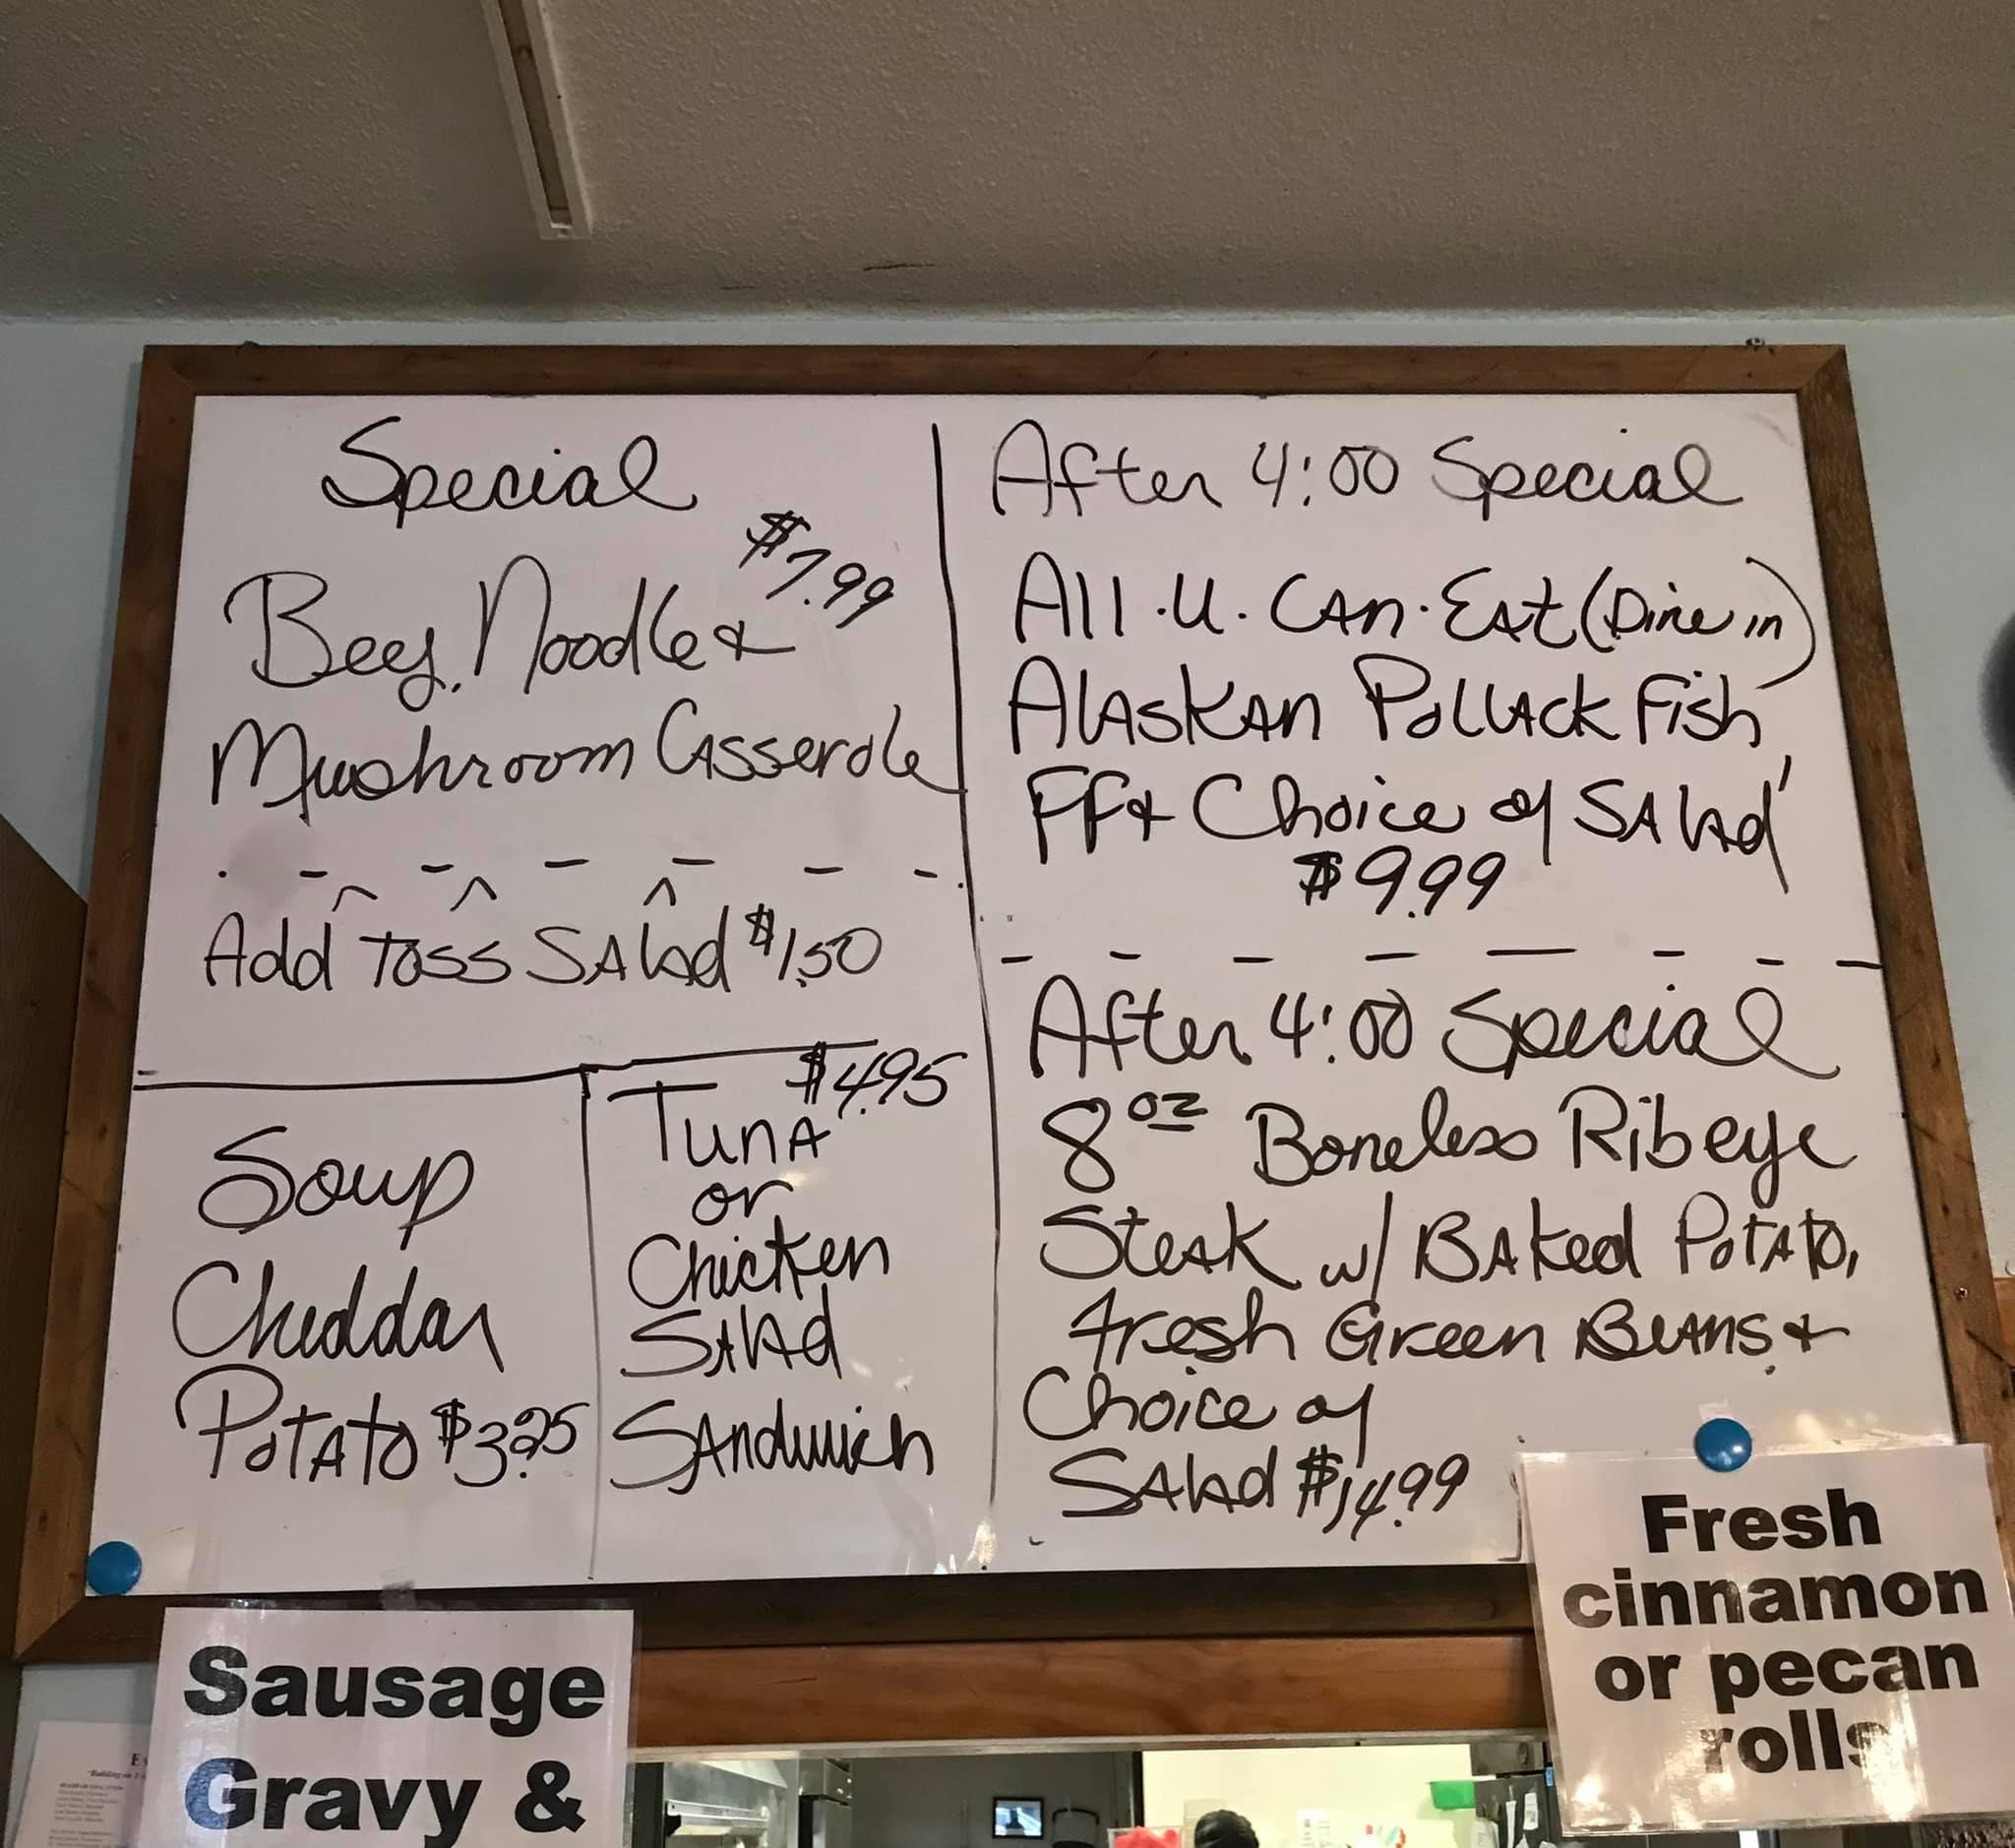 Special
$7.99
Beef, Noodle &
Mushroom Casserole
Add Toss Salad $1.50
Soup
Cheddar
Potato $3.25
$4.95
Tuna
or
Chicken
Salad
Sandwich
After 4:00 Special
All.U.Can.Eat (Dine in)
Alaskan Pollack Fish,
FF & Choice of Salad
$9.99
After 4:00 Special
8 oz Boneless Ribeye
Steak w/ Baked Potato,
Fresh Green Beans &
Choice of
Salad $14.99
Sausage
Gravy &
Fresh
cinnamon
or pecan
rolls